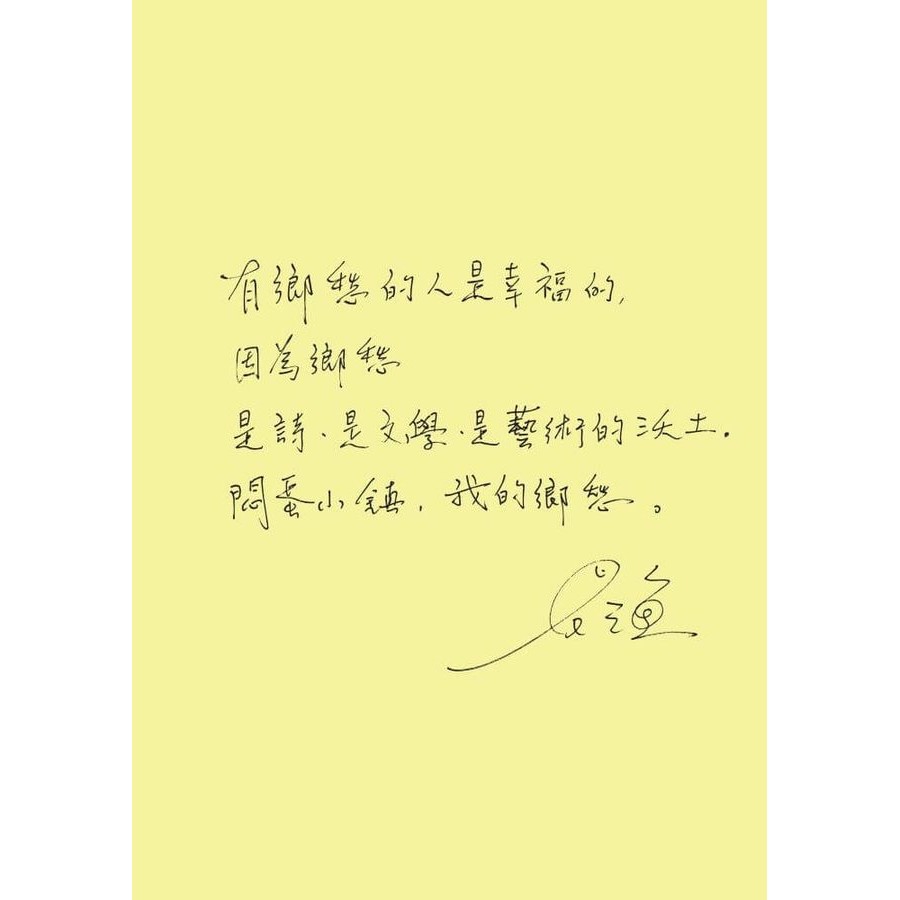 有鄉愁的人是幸福的,
因為鄉愁
是詩、是文學、是藝術的沃土.
悶蛋小鎮,我的鄉愁。